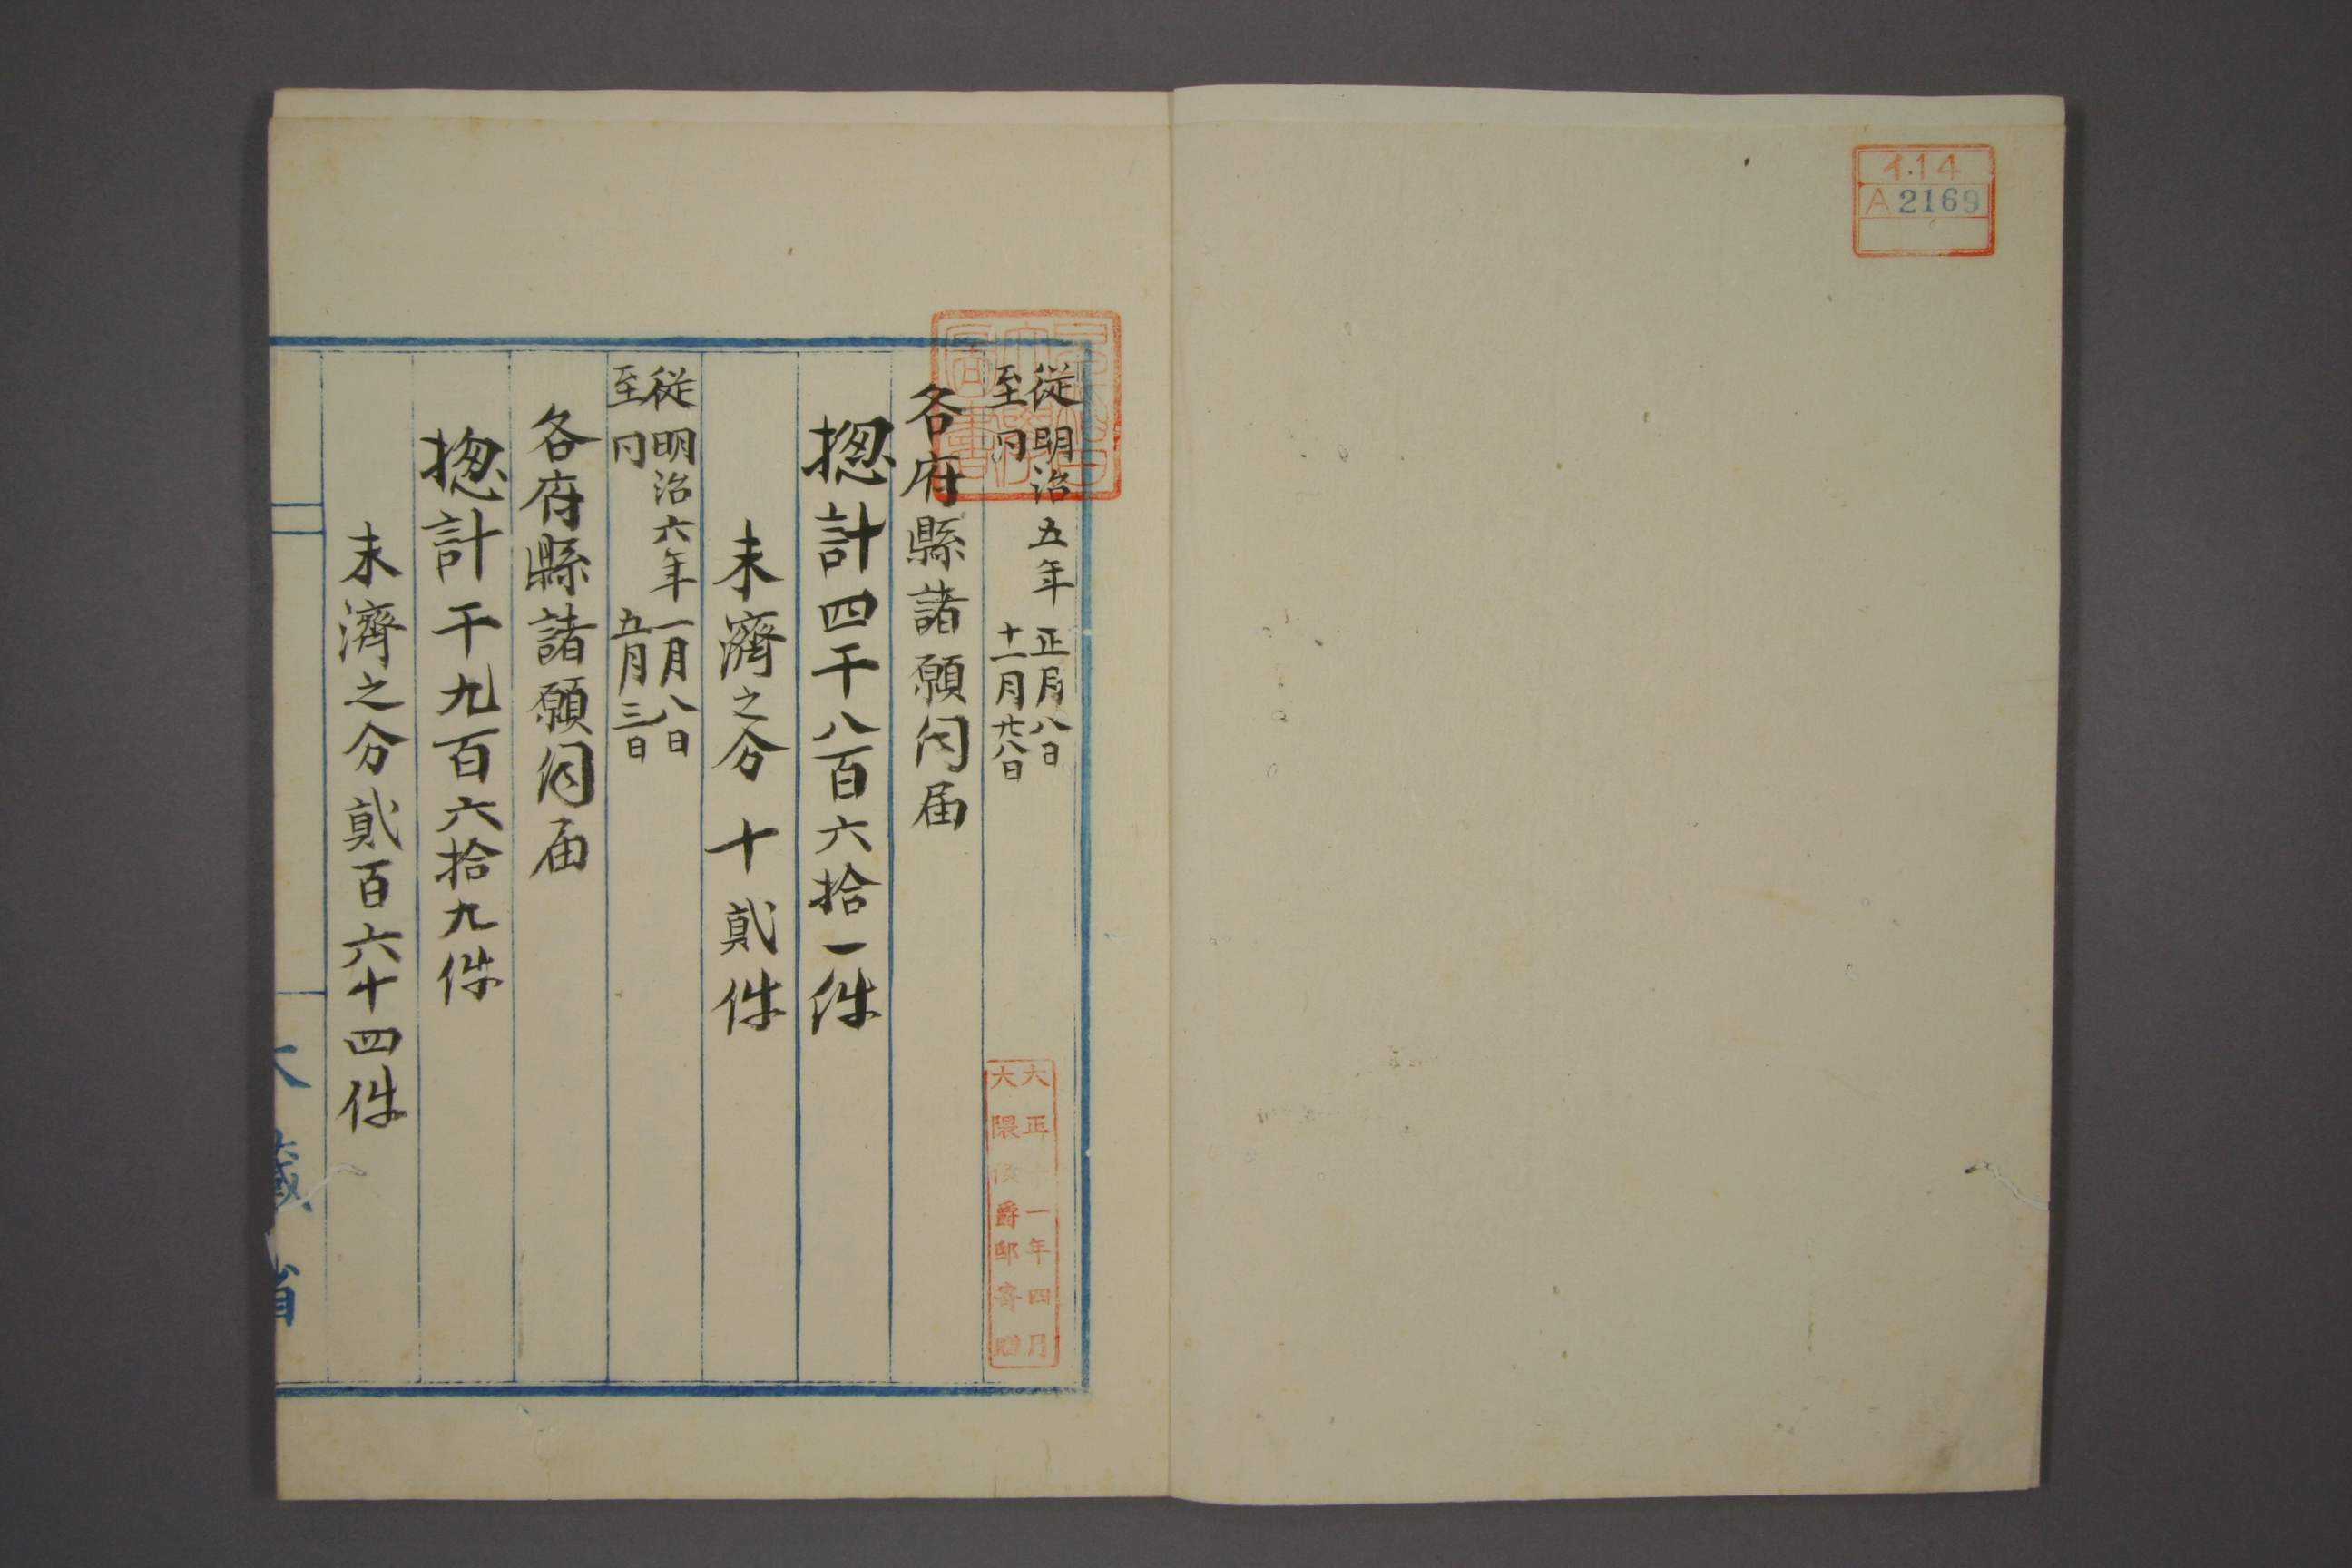 イ.14
A 2169
従明治五年正月八日
至同十一月廿八日
各府縣諸願伺届
揔計四千八百六拾一件
未濟之分十貳件
従明治六年一月八日
至同五月三日
各府縣諸願伺届
揔計千九百六拾九件
未濟之分貳百六十四件
大藏省
大正十一年四月
大隈侯爵邸寄贈